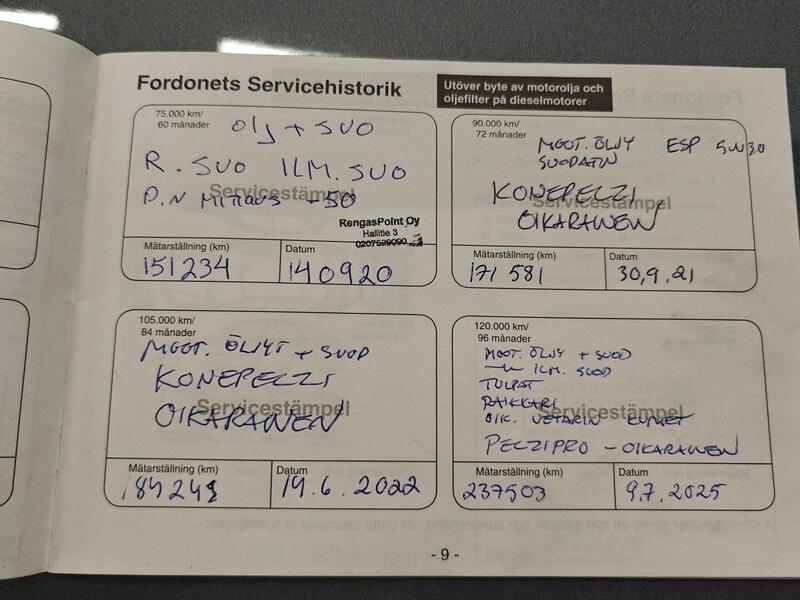 Fordonets Servicehistorik
Utöver byte av motorolja och
oljefilter på dieselmotorer
75.000 km/
60 månader
Olj + SUO
R. SUO ILM. SUO
P.N MITTAUS -50
Servicestämpel
RengasPoint Oy
Hallitie 3
0207529090
Mätarställning (km)
151234
Datum
140920
90.000 km/
72 månader
MOOT. ÖLJY ESP 5W30
SUODATIN
Servicestämpel
KONEPELZI
OIKARAINEN
Mätarställning (km)
171 581
Datum
30,9.21
105.000 km/
84 månader
MOOT. ÖLJYT + SUOD
KONEPELZI
Servicestämpel
OIKARAINEN
Mätarställning (km)
184248
Datum
19.6.2022
120.000 km/
96 månader
MOOT. ÖLJY + SUOD
ILM. SUOD
TULPAT
RAIKKARI
Servicestämpel
OIK. VETARIN KUMET
PELZIPRO - OIKARAINEN
Mätarställning (km)
237503
Datum
9.7.2025
- 9 -